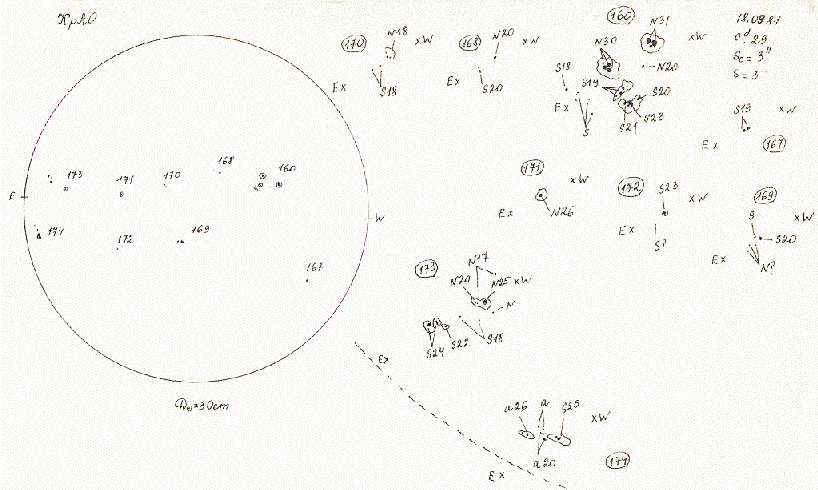 КрАО
18.09.81
170
N18
xW
Ex
S18
168
N20
xW
Ex
S20
160
N31
N30
xW
N20
S18
S19
Ex
S20
S23
S21
S
S = 3
S19
xW
Ex
167
173
171
170
168
160
E
W
174
172
169
167
171
xW
Ex
N26
172
S23
xW
Ex
S?
169
S
xW
S20
Ex
N?
173
N17
N20
N25
xW
N
S18
S22
S24
Ex
D⊙=30cm
a26
a
S25
xW
a20
Ex
174